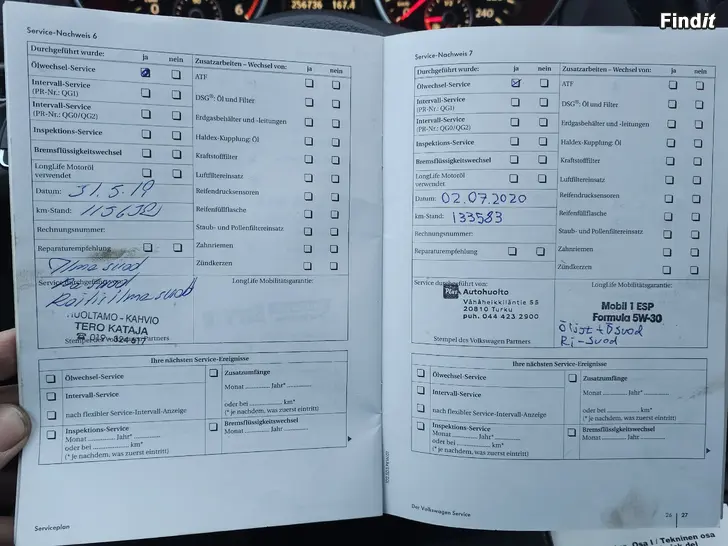 Findit
256736 167.4
240
Service-Nachweis 6
Durchgeführt wurde: ja nein
Ölwechsel-Service
Intervall-Service
(PR-Nr.: QG1)
Intervall-Service
(PR-Nr.: QG0/QG2)
Inspektions-Service
Bremsflüssigkeitswechsel
LongLife Motoröl
verwendet
Datum: 31.5.19
km-Stand:
Rechnungsnummer:
Reparaturempfehlung
Ilmasuod
Raitisilmasuod
HUOLTAMO - KAHVIO
TERO KATAJA
Stempel des Volkswagen Partners
Zusatzarbeiten – Wechsel von: ja nein
ATF
DSG®: Öl und Filter
Erdgasbehälter und -leitungen
Haldex-Kupplung: Öl
Kraftstofffilter
Luftfiltereinsatz
Reifendrucksensoren
Reifenfüllflasche
Staub- und Pollenfiltereinsatz
Zahnriemen
Zündkerzen
LongLife Mobilitätsgarantie:
Ihre nächsten Service-Ereignisse
Ölwechsel-Service
Intervall-Service
nach flexibler Service-Intervall-Anzeige
Inspektions-Service
Monat Jahr*
oder bei km*
(* je nachdem, was zuerst eintritt)
Zusatzumfänge
Monat Jahr*
oder bei km*
(* je nachdem, was zuerst eintritt)
Bremsflüssigkeitswechsel
Monat Jahr
Serviceplan
Service-Nachweis 7
Durchgeführt wurde: ja nein
Ölwechsel-Service
Intervall-Service
(PR-Nr.: QG1)
Intervall-Service
(PR-Nr.: QG0/QG2)
Inspektions-Service
Bremsflüssigkeitswechsel
LongLife Motoröl
verwendet
Datum: 02.07.2020
km-Stand: 133583
Rechnungsnummer:
Reparaturempfehlung
Service durchgeführt von:
Autohuolto
Vänäheikkiläntie 55
20810 Turku
puh. 044 423 2900
Stempel des Volkswagen Partners
Zusatzarbeiten – Wechsel von: ja nein
ATF
DSG®: Öl und Filter
Erdgasbehälter und -leitungen
Haldex-Kupplung: Öl
Kraftstofffilter
Luftfiltereinsatz
Reifendrucksensoren
Reifenfüllflasche
Staub- und Pollenfiltereinsatz
Zahnriemen
Zündkerzen
LongLife Mobilitätsgarantie:
Mobil 1 ESP
Formula 5W-30
Öljyt + Ösuod
Ri-suod
Ihre nächsten Service-Ereignisse
Ölwechsel-Service
Intervall-Service
nach flexibler Service-Intervall-Anzeige
Inspektions-Service
Monat Jahr*
oder bei km*
(* je nachdem, was zuerst eintritt)
Zusatzumfänge
Monat Jahr*
oder bei km*
(* je nachdem, was zuerst eintritt)
Bremsflüssigkeitswechsel
Monat Jahr
Der Volkswagen Service
26 27
Osa I / Tekninen osa